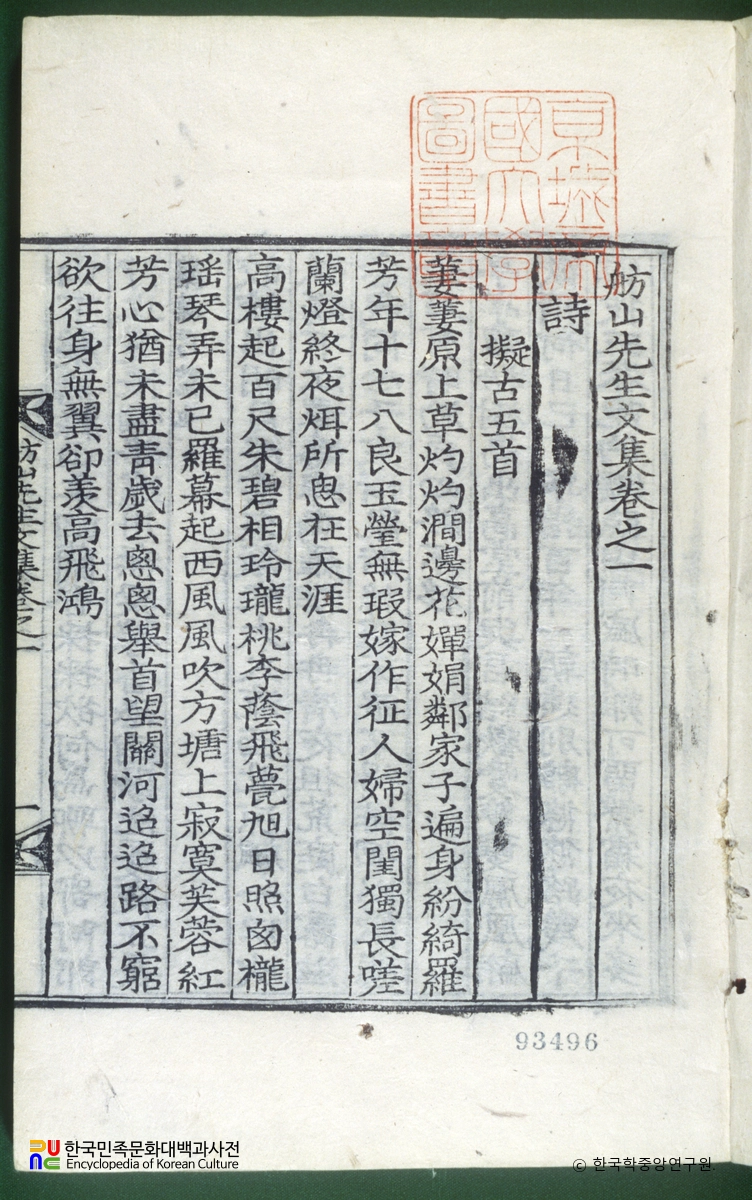 京城帝
國大學
圖書章
舫山先生文集卷之一
詩
擬古五首
萋萋原上草灼灼澗邊花嬋娟鄰家子遍身紛綺羅
芳年十七八良玉瑩無瑕嫁作征人婦空閨獨長嗟
蘭燈終夜炷所思在天涯
高樓起百尺朱碧相玲瓏桃李蔭飛甍旭日照囪櫳
瑶琴弄未已羅幕起西風風吹方塘上寂寞芙蓉紅
芳心猶未盡靑歲去悤悤舉首望關河迢迢路不窮
欲往身無翼卻羨高飛鴻
舫山先生文集卷之一
一
93496
한국민족문화대백과사전
Encyclopedia of Korean Culture
© 한국학중앙연구원